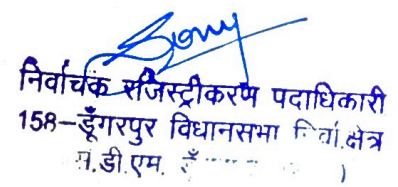 निर्वाचक रजिस्ट्रीकरण पदाधिकारी
158-डूँगरपुर विधानसभा निर्वा.क्षेत्र
डी.एम.